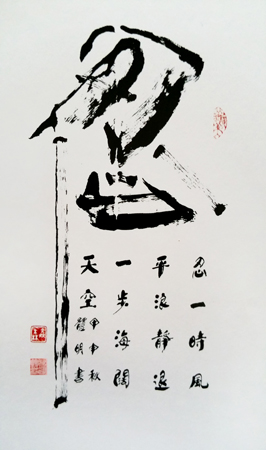 忍
忍一時風
平浪靜退
一步海闊
天空
甲申秋
明書